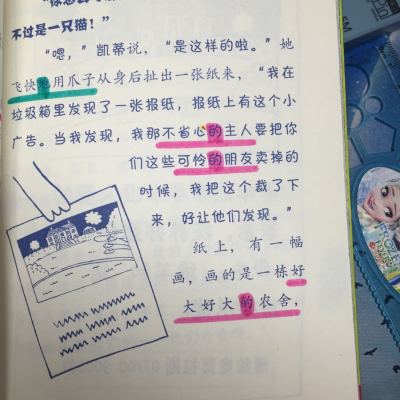 不过是一只猫！”
“嗯，”凯蒂说，“是这样的啦。”她
飞快地用爪子从身后扯出一张纸来，“我在
垃圾箱里发现了一张报纸，报纸上有这个小
广告。当我发现，我那不省心的主人要把你
们这些可怜的朋友卖掉的
时候，我把这个裁了下
来，好让他们发现。”
纸上，有一幅
画，画的是一栋好
大好大的农舍，